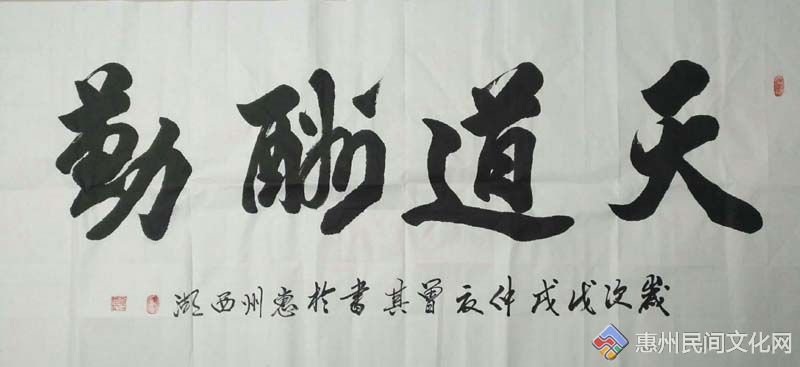 天道酬勤
歲次戊戌仲夏曾其書於惠州西湖
惠州民间文化网